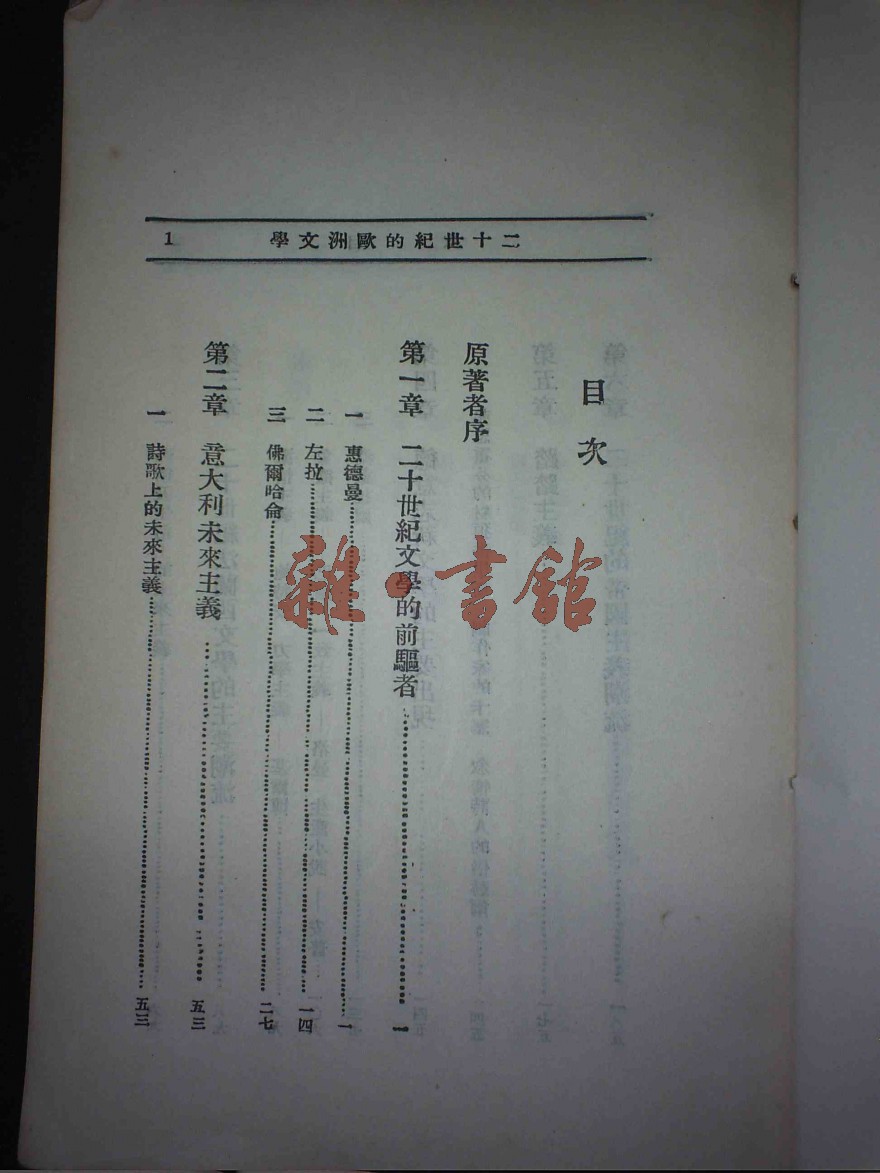 二十世紀的歐洲文學 1
目次
原著者序
第一章 二十世紀文學的前驅者 一
一 惠德曼 一
二 左拉 一四
三 佛爾哈侖 二七
第二章 意大利未來主義 五三
一 詩歌上的未來主義 五三
雜·書館